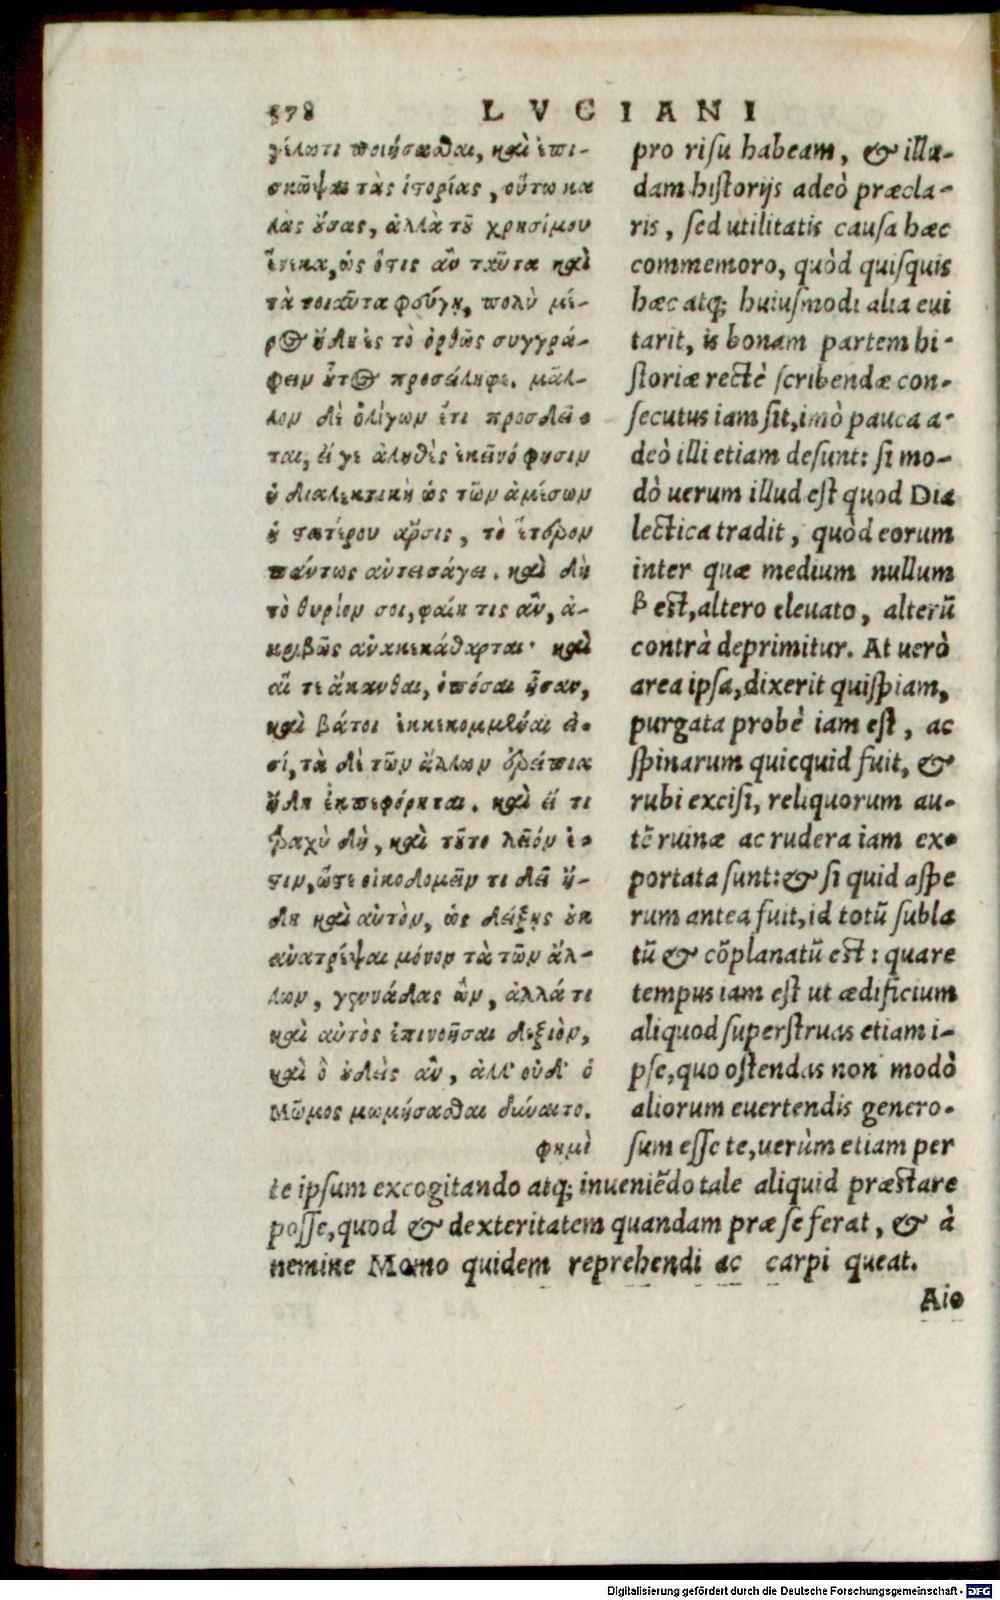 578 LVCIANI
γέλωτι ποιήσασθαι, καὶ ἐπι-
σκῶψαι τὰς ἱστορίας, οὕτω κα
λὰς οὔσας, ἀλλὰ τοῦ χρησίμου
ἕνεκα, ὡς ὅστις ἂν ταῦτα καὶ
τὰ τοιαῦτα φεύγῃ, πολὺ μέ-
ρος ἤδη ἐς τὸ ὀρθῶς συγγρά-
φειν οὗτος προσέληφε. μᾶλ-
λον δὲ ὀλίγων ἔτι προσδεῖ
ται, εἴ γε ἀληθὲς ἐκεῖνό φησιν
ἡ διαλεκτικὴ ὡς τῶν ἀμέσων
ἡ θατέρου ἄρσις, τὸ ἕτερον
πάντως ἀντεισάγει. καὶ δὴ
τὸ θυρίον σοι, φαίη τις ἂν, ἀ-
κριβῶς ἀνακεκάθαρται· καὶ
αἵ τε ἄκανθαι, ὁπόσαι ἦσαν,
καὶ βάτοι ἐκκεκομμέναι εἰ-
σί, τὰ δὲ τῶν ἄλλων ἐρείπια
ἤδη ἐκπεφόρηται. καὶ εἴ τι
τραχὺ δὴ, καὶ τοῦτο λεῖόν ἐσ
τιν, ὥστε οἰκοδομεῖν τι δεῖ ἤ-
δη καὶ αὐτὸν, ὡς δείξῃς οὐκ
ἀνατρέψαι μόνον τὰ τῶν ἄλ-
λων, γεννάδας ὢν, ἀλλά τι
καὶ αὐτὸς ἐπινοῆσαι δεξιὸν,
καὶ ὃ οὐδεὶς ἂν, ἀλλ' οὐδ' ὁ
Μῶμος μωμήσασθαι δύναιτο.
φημὶ
pro risu habeam, & illu-
dam historijs adeò præcla-
ris, sed utilitatis causa hæc
commemoro, quòd quisquis
hæc atq; huiusmodi alia eui
tarit, is bonam partem hi-
storiæ rectè scribendæ con-
secutus iam sit, imò pauca a-
deò illi etiam desunt: si mo-
dò uerum illud est quod Dia
lectica tradit, quòd eorum
inter quæ medium nullum
β est, altero eleuato, alterũ
contrà deprimitur. At uerò
area ipsa, dixerit quispiam,
purgata probè iam est, ac
spinarum quicquid fuit, &
rubi excisi, reliquorum au-
tẽ ruinæ ac rudera iam ex-
portata sunt: & si quid aspe
rum antea fuit, id totũ subla
tũ & cõplanatũ est: quare
tempus iam est ut ædificium
aliquod superstruas etiam i-
pse, quo ostendas non modò
aliorum euertendis genero-
sum esse te, uerùm etiam per
te ipsum excogitando atq; inueniẽdo tale aliquid præstare
posse, quod & dexteritatem quandam præ se ferat, & à
nemine Momo quidem reprehendi ac carpi queat.
Aio
Digitalisierung gefördert durch die Deutsche Forschungsgemeinschaft - DFG